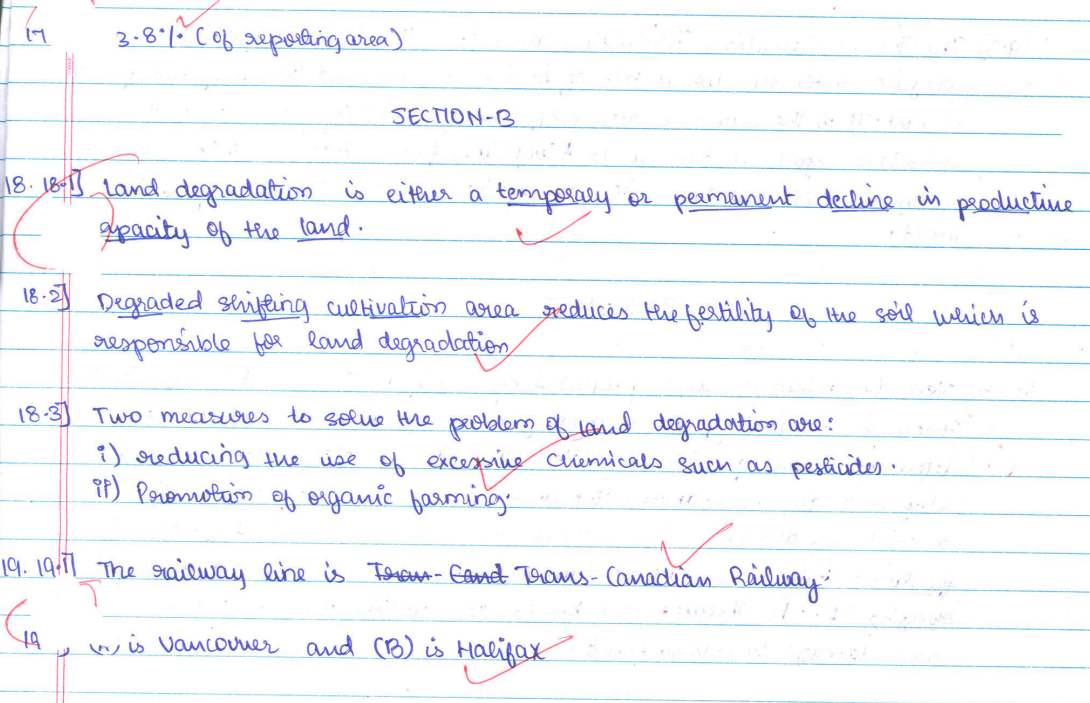 17 3.8% (of reporting area)
SECTION-B
18. 18.1] Land degradation is either a temporary or permanent decline in productive
capacity of the land.
18.2] Degraded shifting cultivation area reduces the fertility of the soil which is
responsible for land degradation
18.3] Two measures to solve the problem of land degradation are:
i) reducing the use of excessive chemicals such as pesticides.
ii) Promotion of organic farming.
19. 19.1] The railway line is Tran-Cand Trans-Canadian Railway.
19 is Vancouver and (B) is Halifax